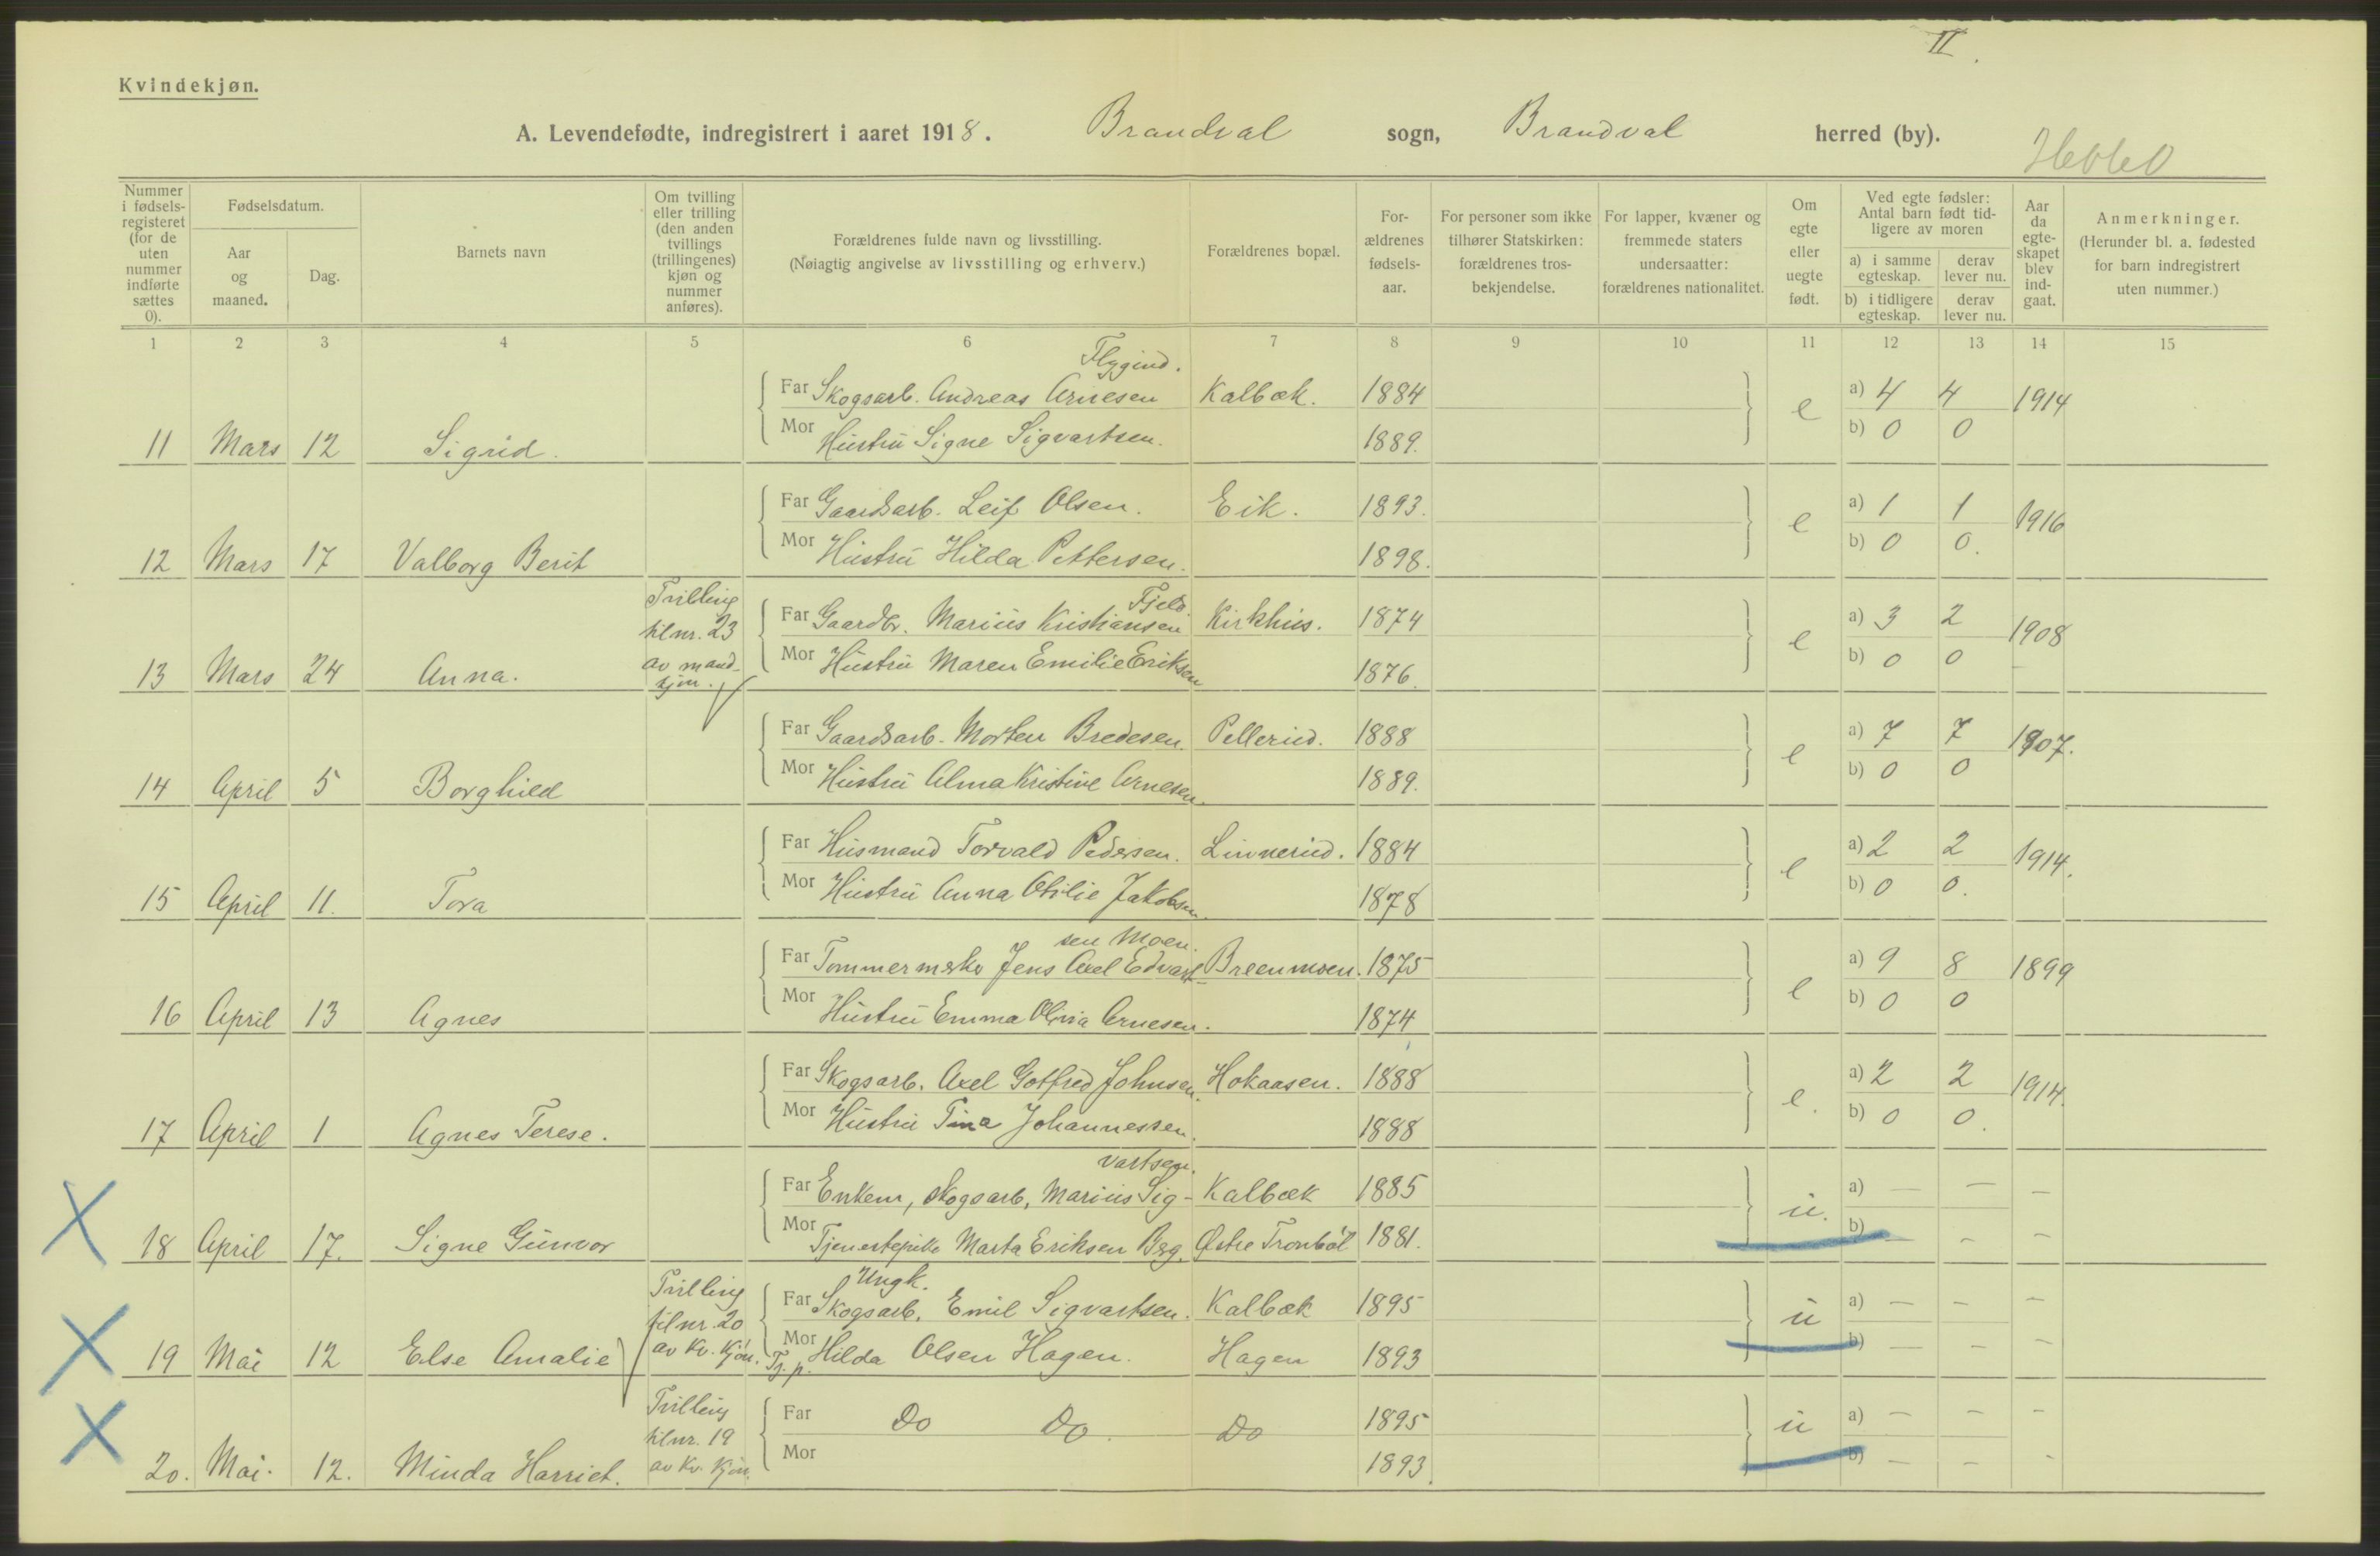 II.
Kvindekjøn.
A. Levendefødte, indregistrert i aaret 1918. Brandval sogn, Brandval herred (by).
Nummer i fødsels-registeret (for de uten nummer indførte sættes 0).
Fødselsdatum.
Aar og maaned.
Dag.
Barnets navn
Om tvilling eller trilling (den anden tvillings (trillingenes) kjøn og nummer anføres).
Forældrenes fulde navn og livsstilling.
(Nøiagtig angivelse av livsstilling og erhverv.)
Forældrenes bopæl.
For-ældrenes fødsels-aar.
For personer som ikke tilhører Statskirken: forældrenes tros-bekjendelse.
For lapper, kvæner og fremmede staters undersaatter: forældrenes nationalitet.
Om egte eller uegte født.
Ved egte fødsler: Antal barn født tid-ligere av moren
a) i samme egteskap. derav lever nu.
b) i tidligere egteskap. derav lever nu.
Aar da egte-skapet blev ind-gaat.
Anmerkninger.
(Herunder bl. a. fødested for barn indregistrert uten nummer.)
1 2 3 4 5 6 7 8 9 10 11 12 13 14 15
Flygind.
Far Skogsarb. Andreas Arnesen Kalbæk. 1884 e a) 4 4 1914
11 Mars 12 Sigrid. Mor Hustru Signe Sigvartsen. 1889. b) 0 0
Far Gaardsarb. Leif Olsen. Eik. 1893. e a) 1 1 1916
12 Mars 17 Valborg Berit Mor Hustru Hilda Pettersen. 1898. b) 0 0.
Tvilling Fjeld.
til nr. 23 Far Gaardbr. Marius Kristiansen Kirkhus. 1874 e a) 3 2 1908
13 Mars 24 Anna. av mand-kjøn. Mor Hustru Maren Emilie Eriksen 1876. b) 0 0
Far Gaardsarb. Morten Bredesen. Pellerud. 1888 e a) 7 7 1907.
14 April 5 Borghild Mor Hustru Alma Kristine Arnesen. 1889. b) 0 0
Far Husmand Torvald Pedersen. Linnerud. 1884 e a) 2 2 1914.
15 April 11. Tora Mor Hustru Anna Otilie Jakobsen. 1878 b) 0 0.
sen Moen.
Far Tommermske Jens Axel Edvart- Breenmoen. 1875 e a) 9 8 1899
16 April 13 Agnes Mor Hustru Emma Olivia Arnesen. 1874 b) 0 0
Far Skogsarb. Axel Gotfred Johnsen. Hokaasen. 1888 e. a) 2 2 1914.
17 April 1 Agnes Terese. Mor Hustru Tina Johannessen. 1888 b) 0 0.
vartsen.
Far Enkem, skogsarb, Marius Sig- Kalbæk 1885 u. a) — — —
18 April 17. Signe Gunvor Mor Tjenestepike Marta Eriksen Berg. Østre Tronbøl 1881. b) — - -
Tvilling Ungk.
til nr. 20 Far Skogsarb. Emil Sigvartsen. Kalbæk 1895 u a) — – –
19 Mai 12 Else Amalie av Kv. Kjøn. Mor Tj. p. Hilda Olsen Hagen. Hagen 1893 b) — – –
Tvilling Far Do Do. Do 1895 u a) — – -
til nr. 19
20. Mai. 12. Minda Harriet. av Kv. Kjøn. Mor 1893. b) — – -